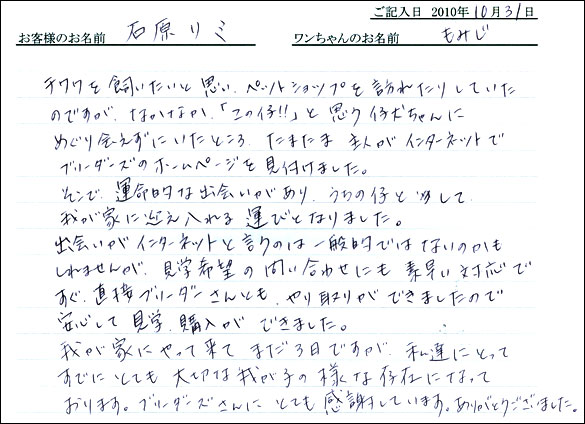 ご記入日 2010年10月31日
お客様のお名前 石原リミ ワンちゃんのお名前 もみじ
チワワを飼いたいと思い、ペットショップを訪れたりしていた
のですが、なかなか、「この仔!!」と思う仔犬ちゃんに
めぐり会えずにいたところ、たまたま主人がインターネットで
ブリーダーズのホームページを見付けました。
そこで、運命的な出会いがあり、うちの仔として
我が家に迎え入れる運びとなりました。
出会いがインターネットと言うのは一般的ではないのかも
しれませんが、見学希望の問い合わせにも素早い対応で
すぐ、直接ブリーダーさんとも、やり取りができましたので
安心して見学、購入ができました。
我が家にやって来てまだ3日ですが、私達にとって
すでにとても大切な我が子の様な存在になって
おります。ブリーダーズさんにとても感謝しています。ありがとうございました。